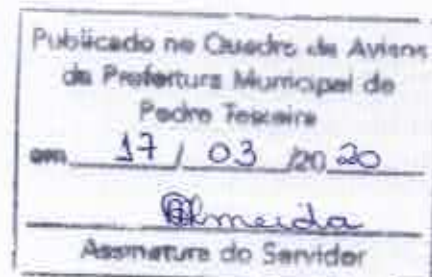 Publicado no Quadro de Avisos
da Prefeitura Municipal de
Pedro Teixeira
em 17 / 03 /20 20
Almeida
Assinatura do Servidor